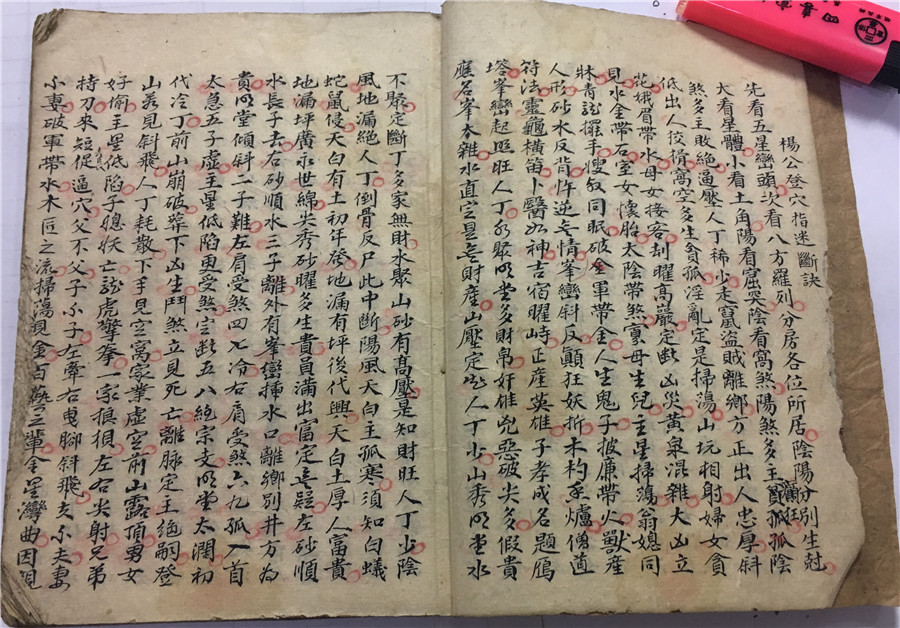 楊公登穴指迷斷訣
先看五星巒頭次看八方羅列分房各位所居陰陽分別生尅
大看星體小看土角陽看窟突陰看窩煞陽煞多主孤孤陰
煞多主敗絕逼壓人丁稀少走竄盜賊離鄉方正出人忠厚斜
低出人狡猾窩空多生貪孤淫亂定是掃蕩山坑相射婦女貪
花娥眉帶水母女接客刮曜高嚴定斷凶災黃泉混雜大凶立
見水金帶石室女懷胎太陰帶煞寡母生兒主星掃蕩翁媳同
牀青龍擺手嫂叔同眠破金軍帶金人生鬼子披廉帶火獸產
人形砂水反背忤逆無情峯巒斜反顛狂妖折木杓香爐僧道
符法靈龜橫笛卜醫如神吉宿曜峙正產英雄子孝成名題鴈
塔峯巒起照旺人丁水聚明堂多財帛奸雄兇惡破尖多假貴
應名峯太雜水直定是無財產山壓定必人丁少山秀明堂水
不聚定斷丁多家無財水聚山砂有高壓是知財旺人丁少陰
風地漏絕人丁倒骨反尸此中斷陽風天白主孤寒須知白蟻
蛇鼠侵天白有土初年發地漏有坪後代興天白土厚人富貴
地漏坪廣永世綿尖秀砂曜多生貴員滿出富定無疑左砂順
水長子去右砂順水三子離外有峯巒插水口離鄉別井方為
貴明堂傾斜二子難左肩受煞四七冷右肩受煞六九孤入首
太急五子虛主星低陷更受煞定斷五八絕宗支明堂太闊初
代冷丁前山崩破塟下凶生鬥煞立見死亡離脉定主絕嗣登
山若見斜飛人丁耗散下手見空窩家業虛空前山露頂男女
好偷主星低陷子媳妖亡龍虎擎拳一家損相左右尖射兄弟
持刀來短促逼穴父不父子不子左牽右曳腳斜飛夫不夫妻
不妻破軍帶水木匠之流掃蕩現金百藝之輩金星灣曲因親